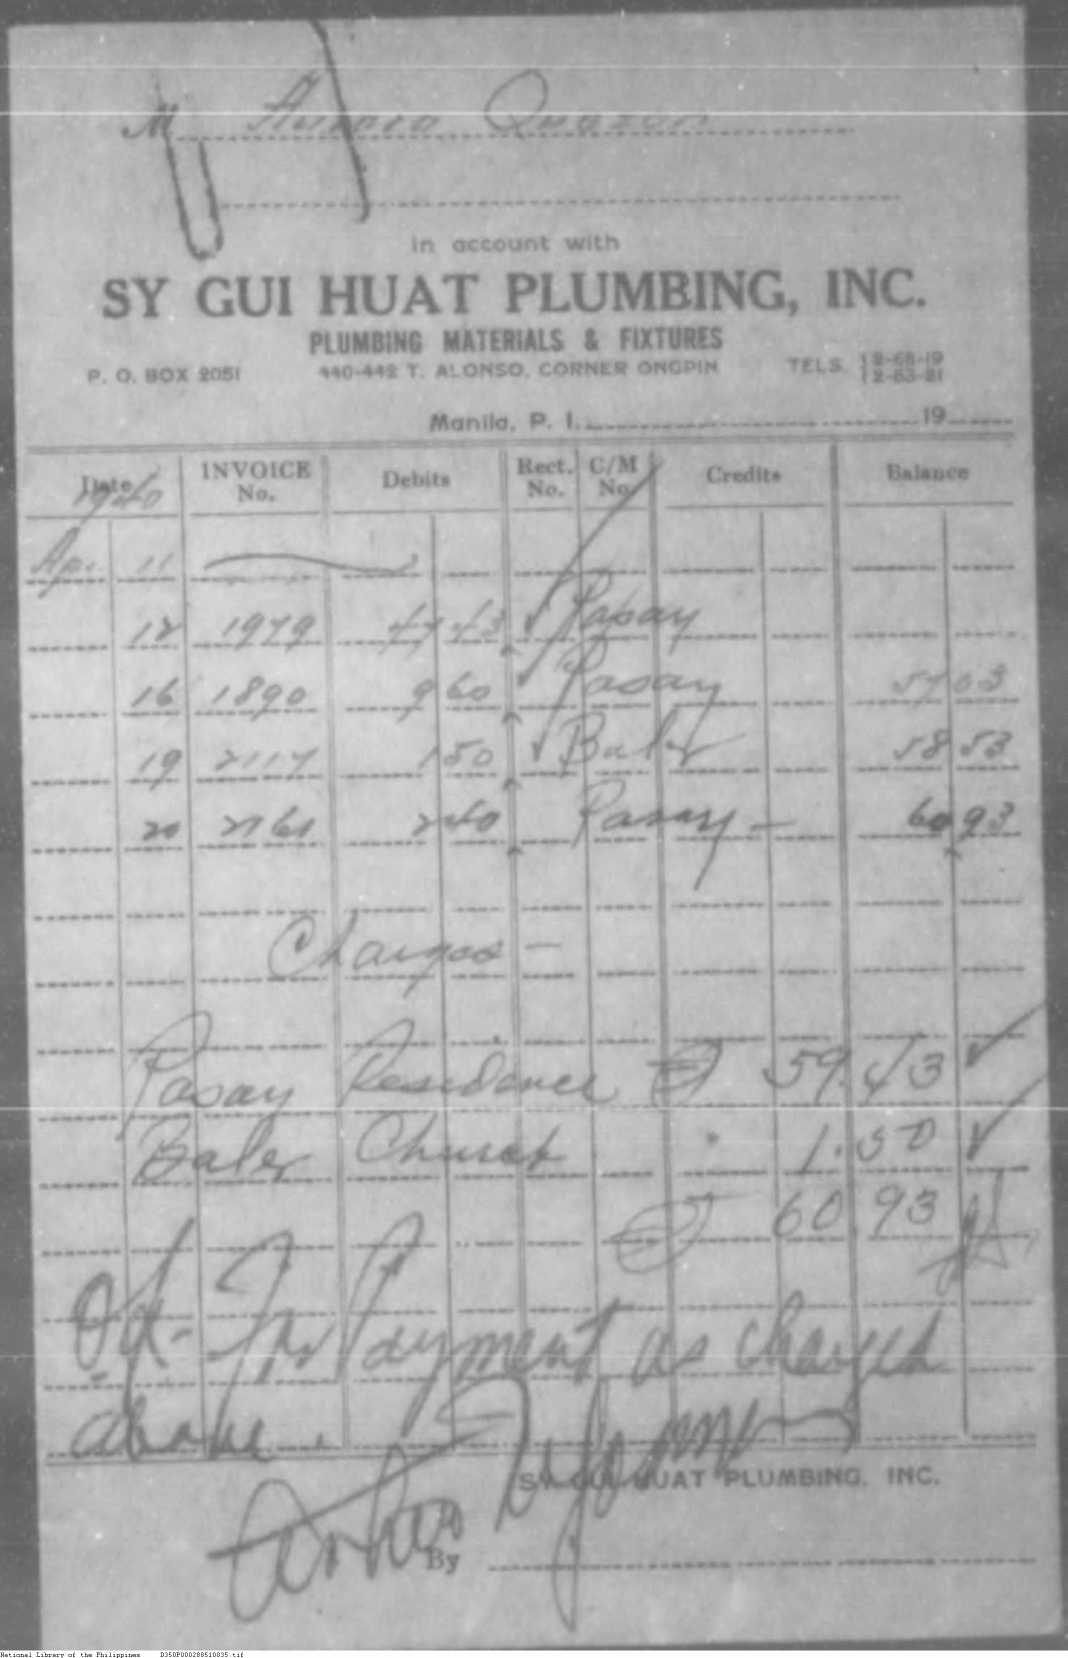 M Aurora Quezon
in account with
SY GUI HUAT PLUMBING, INC.
PLUMBING MATERIALS & FIXTURES
P. O. BOX 2051 440-442 T. ALONSO, CORNER ONGPIN TELS. 2-68-19 2-63-21
Manila, P. I. 19
Date INVOICE No. Debits Rect. No. C/M No. Credits Balance
1940
Ap. 11
12 1979 47 43 Pasay
16 1890 9 60 Pasay 57 03
19 2117 1 50 Baler 58 53
20 2161 2 40 Pasay - 60 93
Charges -
Pasay Residence ₱ 59.43
Baler Church " 1.50
₱ 60.93
O.K. for Payment as charged
above.
SY GUI HUAT PLUMBING, INC.
By
National Library of the Philippines D350P000288510035.tif